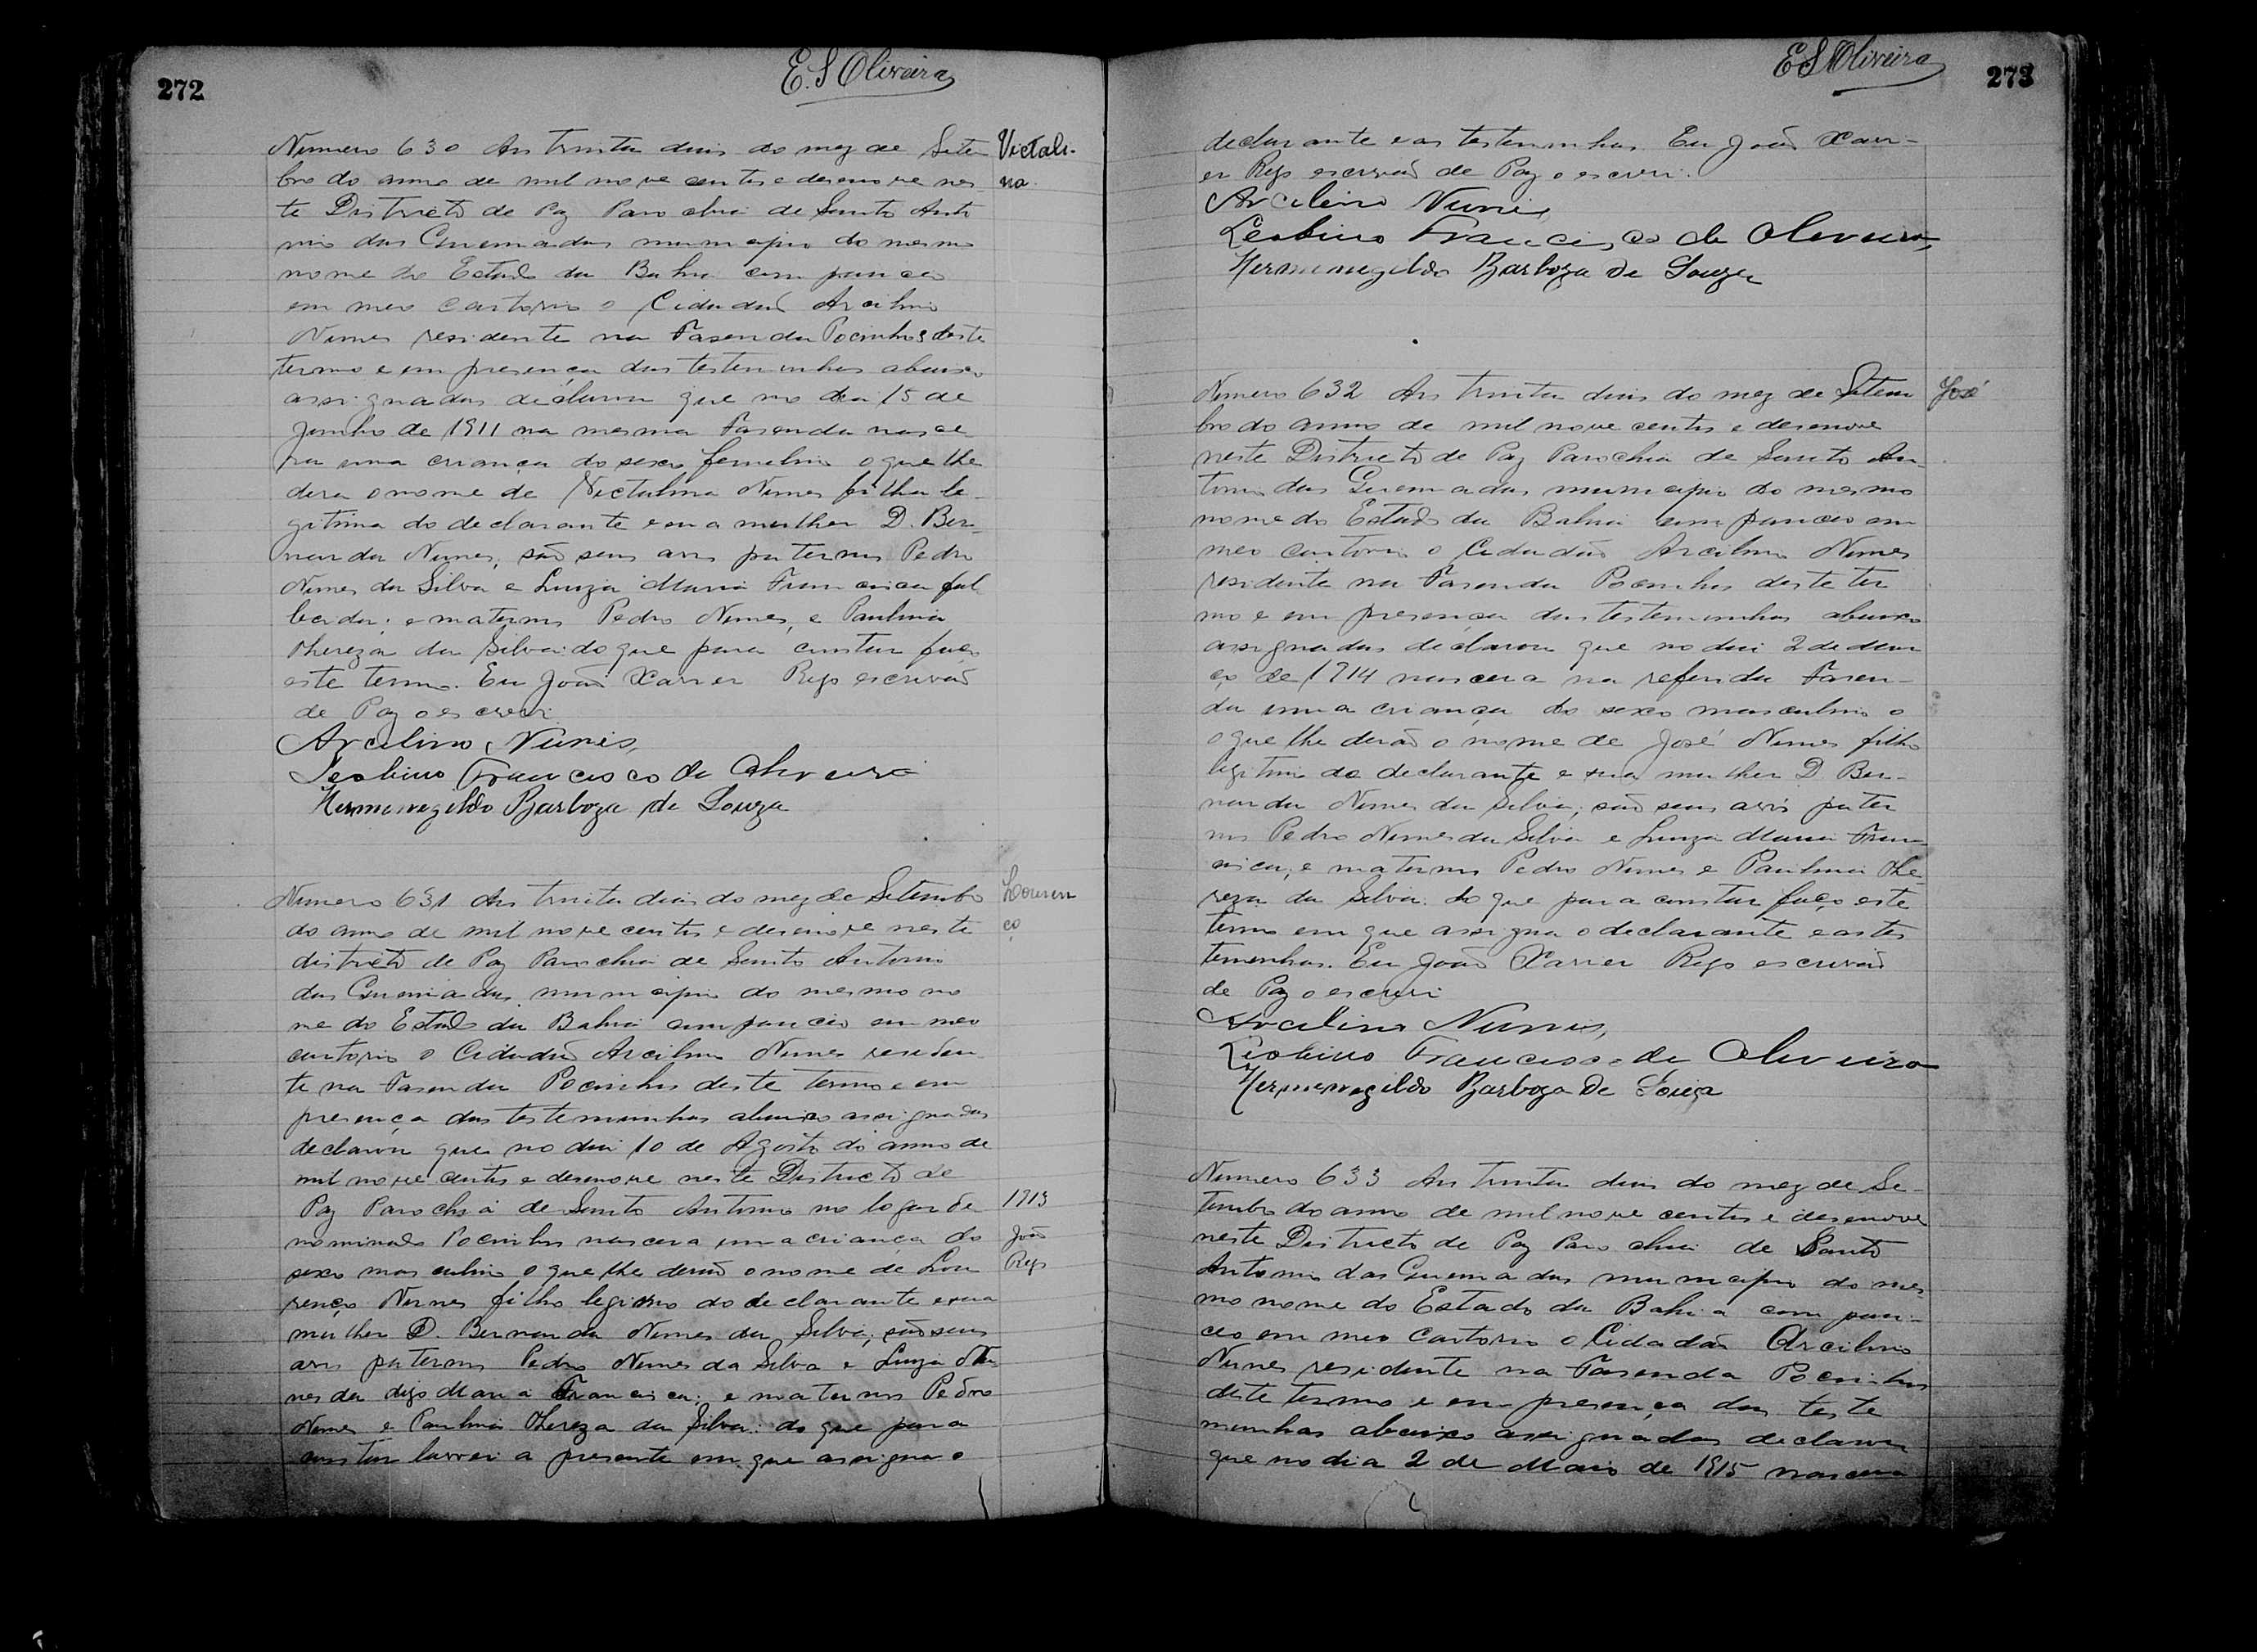 272
E. S Oliveira
Numero 630 Aos trinta dias do mez de Setem Victali-
bro do anno de mil nove centos e desenove nes- na.
te Districto de Paz Parochia de Santo Anto
nio das Queimadas municipio do mesmo
nome do Estado da Bahia compareceo
em meo cartorio o Cidadaõ Arcilino
Nunes residente na Fasenda Pocinhos deste
termo e em presença das testeminhas abaixo
assignadas declarou que no dia 15 de
Junho de 1911 na mesma Fasenda nasce
ra uma criança do sexo femelino o que lhe
dera o nome de Victalina Nunes filha le-
gitima do declarante e sua mulher D. Ber-
narda Nunes, saõ seus avos paternos Pedro
Nunes da Silva e Luiza Maria Francisca fal
lecida; e maternos Pedro Nunes, e Paulina
Thereza da Silva: do que para constar faço
este termo. Eu Joaõ Xavier Rego escrivaõ
de Paz o escrevi
Arcelino Nunis,
Leobino Francisco de Oliveira
Hermenegildo Barboza de Souza
Numero 631 Aos trinta dias do mez de Setembro Louren
do anno de mil nove centos e desenove neste ço
districto de Paz Parochia de Santo Antonio
das Queimadas municipio do mesmo no
me do Estado da Bahia compareceo em meo
cartorio o Cidadaõ Arcilino Nunes residen
te na Fasenda Pocinhos deste termo e em
presença das testeminhas abaixo assignadas
declarou que no dia 10 de Agosto do anno de
mil nove centos e desenove neste Districto de
Paz Parochia de Santo Antonio no logar de 1913
nominado Pocinhos nascera uma criança do Joaõ
sexo masculino o que lhe deraõ o nome de Lou Rego
renço Nunes filho legitimo do declarante e sua
mulher D. Bernarda Nunes da Silva; saõ seus
avos paternos Pedro Nunes da Silva e Luiza Nu
nes da digo Maria Francisca; e maternos Pedro
Nunes e Paulina Thereza da Silva: do que para
constar lavrei a presente em que assigna o
273
E S Oliveira
declarante e as testeminhas Eu Joaõ Xavi-
er Rego escrivaõ de Paz o escrevi.
Arcilino Nunis
Leobino Francisco de Oliveira,
Hermenegildo Barboza de Souza
Numero 632 Aos trinta dias do mez de Setem José
bro do anno de mil nove centos e desenove
neste Districto de Paz Parochia de Santo An-
tonio das Queimadas municipio do mesmo
nome do Estado da Bahia compareceo em
meo cartorio o Cidadaõ Arcilino Nunes
residente na Fasenda Pocinhos deste ter
mo e em presença das testeminhas abaixo
assignadas declarou que no dia 2 de
de 1914 nascera na referida Fasen-
da uma criança do sexo masculino o
o que lhe deraõ o nome de José Nunes filho
legitimo do declarante e sua mulher D Ber-
narda Nunes da Silva; saõ seus avós pater
nos Pedro Nunes da Silva e Luiza Maria Fran
cisca; e maternos Pedro Nunes e Paulina The-
reza da Silva: do que para constar faço este
termo em que assigna o declarante e as tes
temenhas. Eu Joaõ Xavier Rego escrivaõ
de Paz o escrevi
Arcilino Nunis,
Leobino Francisco de Oliveira
Hermenegildo Barboza de Souza
Numero 633 Aos trinta dias do mez de Se-
tembro do anno de mil nove centos e desenove
neste Districto de Paz Parochia de Santo
Antonio das Queimadas municipio do mes-
mo nome do Estado da Bahia compare-
ceo em meo Cartorio o Cidadaõ Arcilino
Nunes residente na Fasenda Pocinhos
deste termo e em presença das teste
munhas abaixo assignadas declarou
que no dia 2 de Maio de 1915 nascera